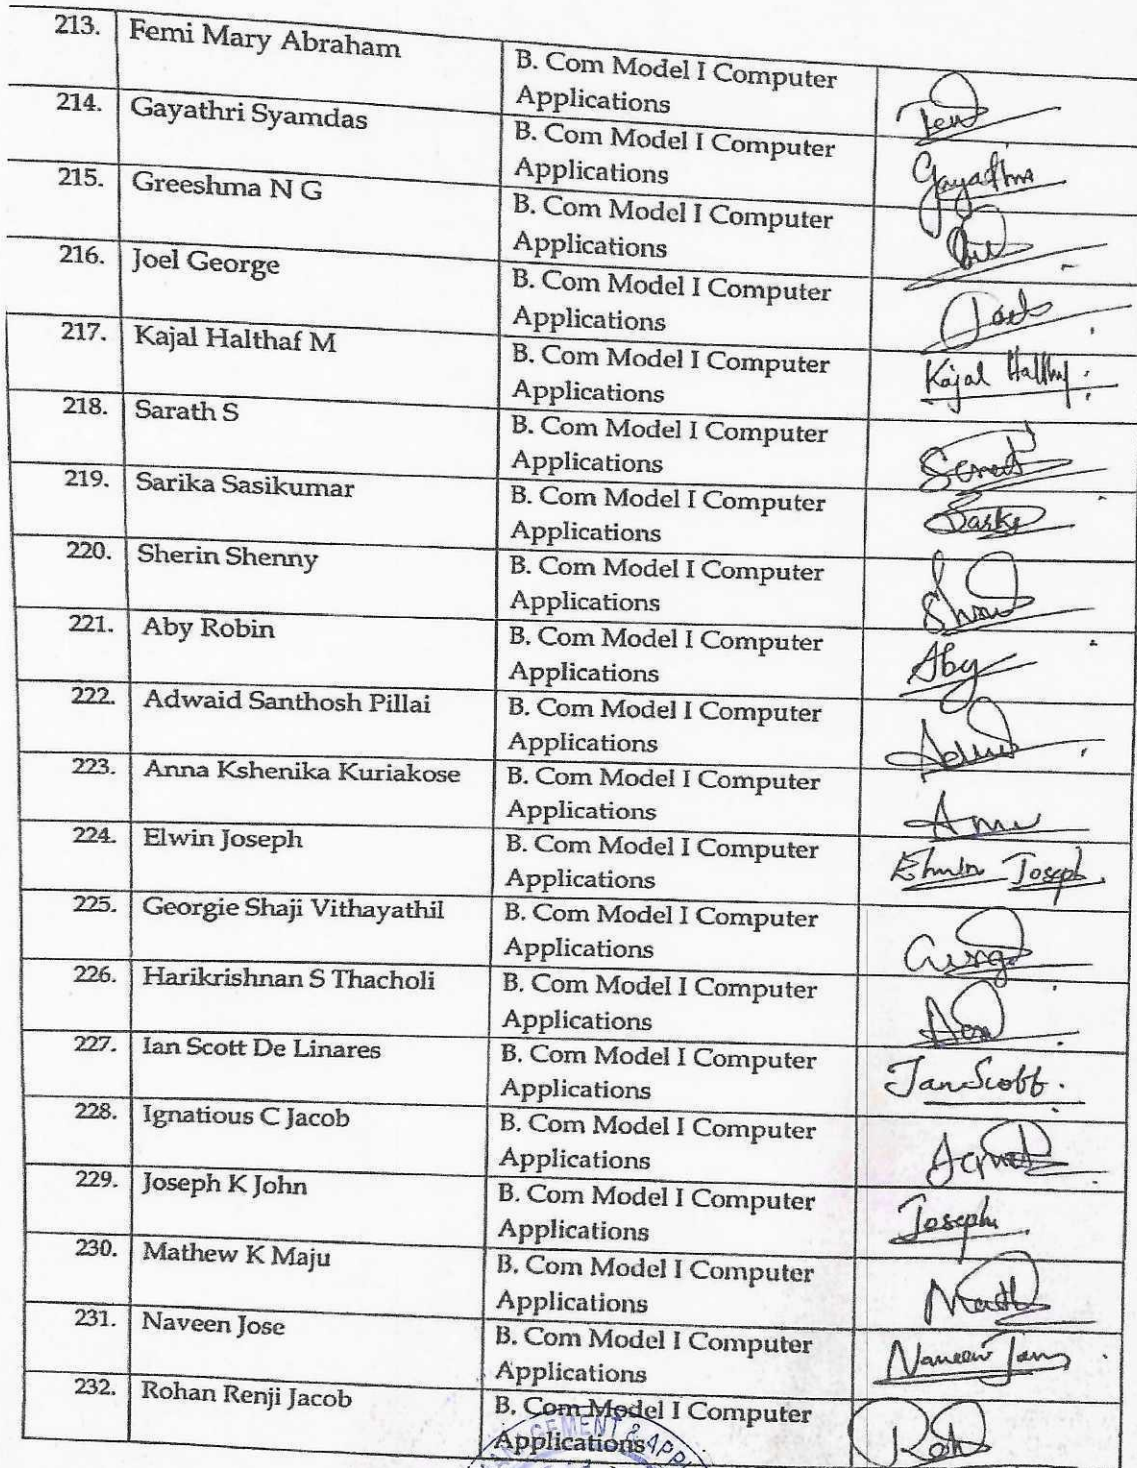 213. Femi Mary Abraham B. Com Model I Computer
Applications
214. Gayathri Syamdas B. Com Model I Computer
Applications Gayathri
215. Greeshma N G B. Com Model I Computer
Applications
216. Joel George B. Com Model I Computer
Applications
217. Kajal Halthaf M B. Com Model I Computer
Applications Kajal
218. Sarath S B. Com Model I Computer
Applications
219. Sarika Sasikumar B. Com Model I Computer
Applications
220. Sherin Shenny B. Com Model I Computer
Applications
221. Aby Robin B. Com Model I Computer
Applications Aby
222. Adwaid Santhosh Pillai B. Com Model I Computer
Applications
223. Anna Kshenika Kuriakose B. Com Model I Computer
Applications
224. Elwin Joseph B. Com Model I Computer
Applications Elwin Joseph.
225. Georgie Shaji Vithayathil B. Com Model I Computer
Applications
226. Harikrishnan S Thacholi B. Com Model I Computer
Applications
227. Ian Scott De Linares B. Com Model I Computer
Applications Ian Scott.
228. Ignatious C Jacob B. Com Model I Computer
Applications
229. Joseph K John B. Com Model I Computer
Applications Joseph
230. Mathew K Maju B. Com Model I Computer
Applications
231. Naveen Jose B. Com Model I Computer
Applications Naveen
232. Rohan Renji Jacob B. Com Model I Computer
Applications